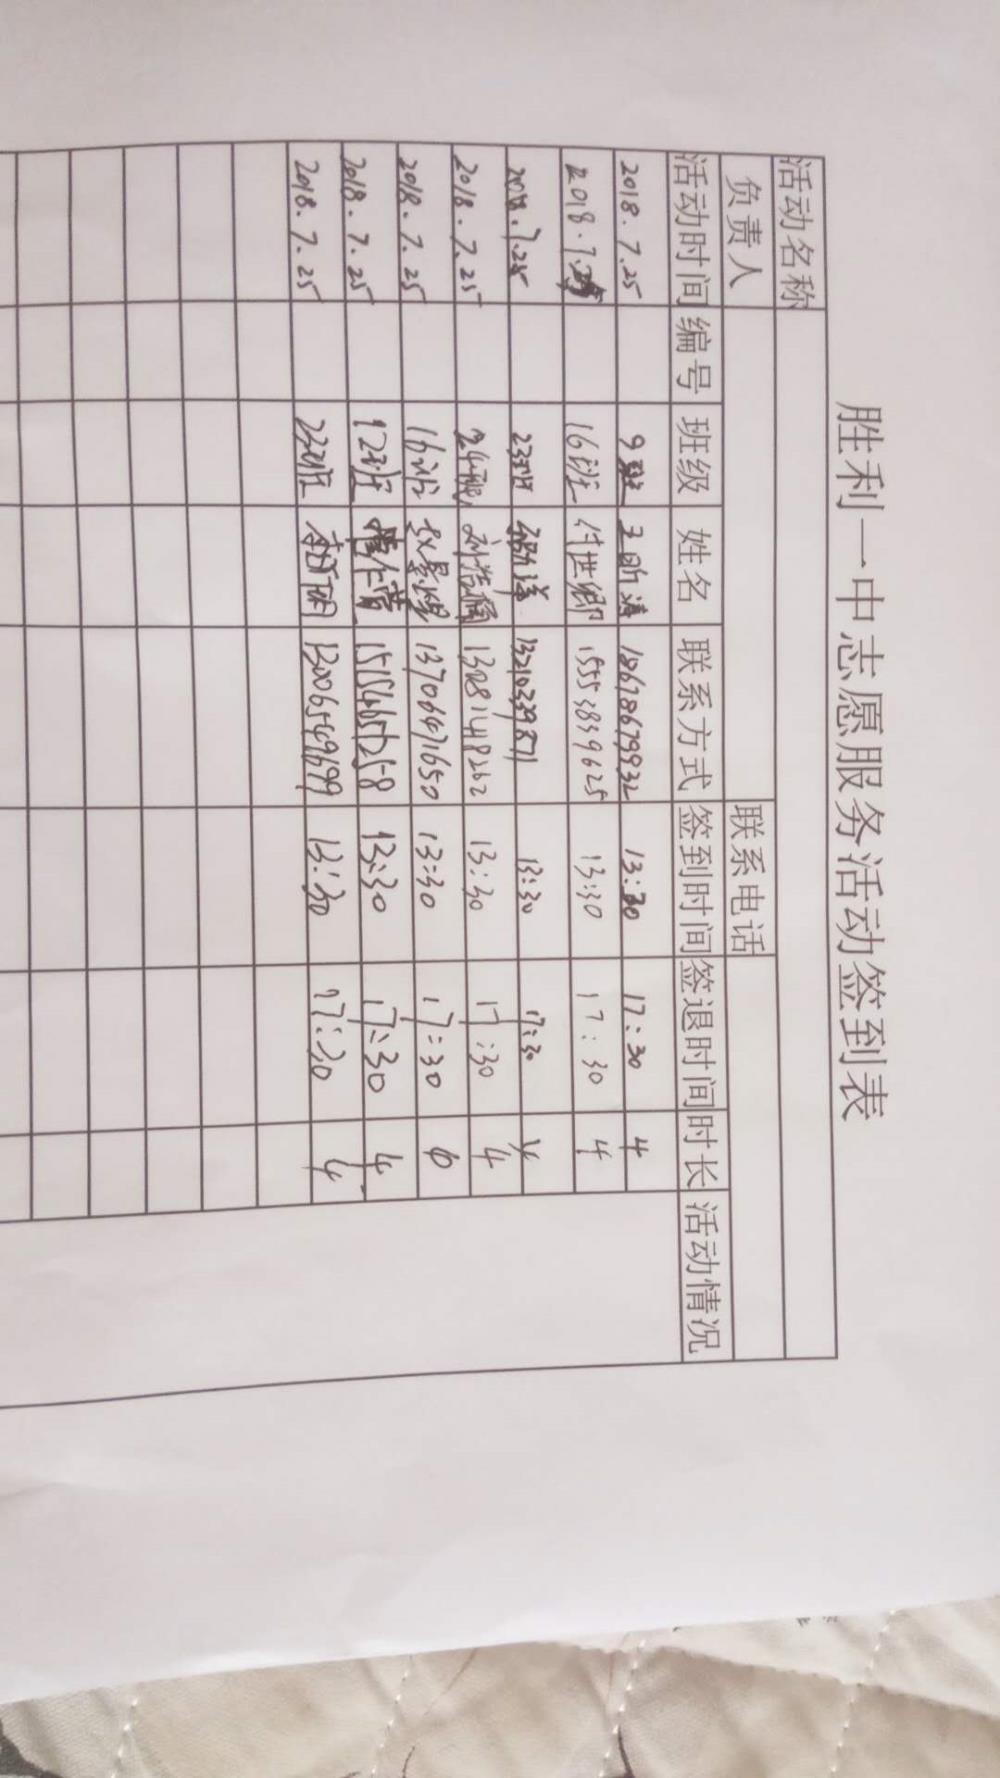 胜利一中志愿服务活动签到表
活动名称
负责人 联系电话
活动时间 编号 班级 姓名 联系方式 签到时间 签退时间 时长 活动情况
2018.7.25 9班 18678679932 13:30 17:30 4
2018.7.25 16班 付世卿 15553839625 13:30 17:30 4
2018.7.25 23班 13210239871 13:30 17:30 4
2018.7.25 13281448262 13:30 17:30 4
2018.7.25 16班 赵景煜 13706471650 13:30 17:30
2018.7.25 12班 13:30 17:30 4
2018.7.25 22班 13006549699 13:30 17:30 4